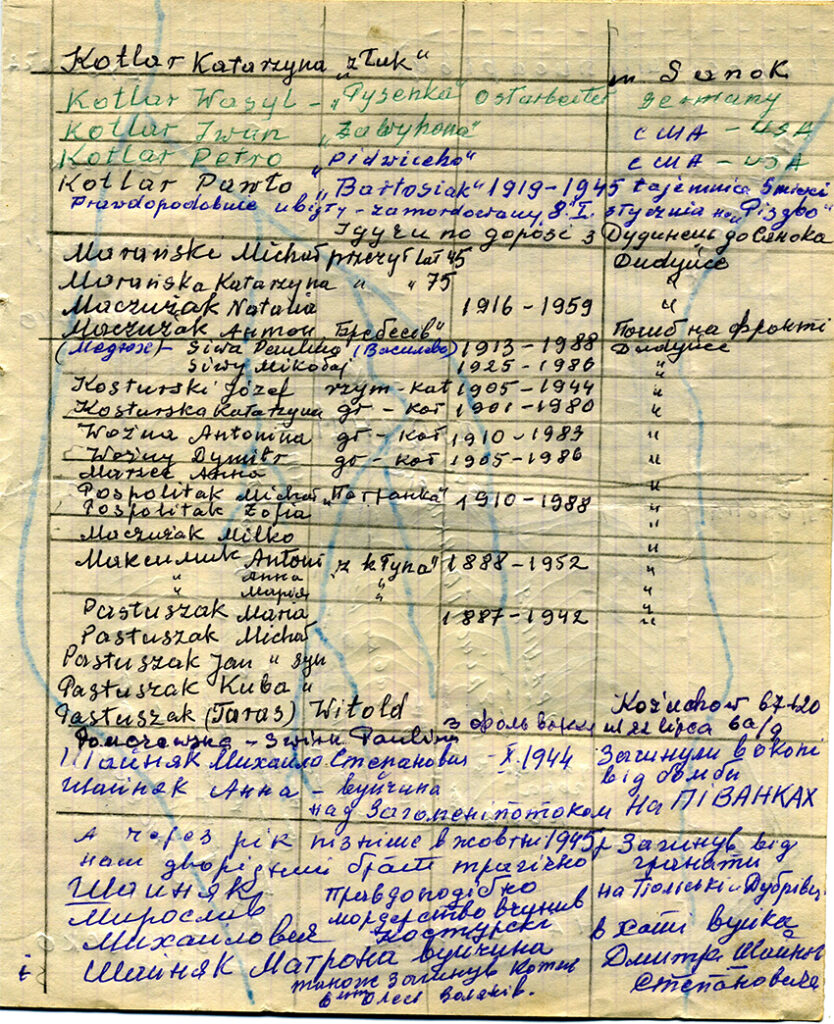 Kotlar Katarzyna "z Łuk" w Sanok
Kotlar Wasyl - "Pysenka" ostarbeiter Germany
Kotlar Iwan "Zawyhona" США - USA
Kotlar Petro "Pidwicho" США - USA
Kotlar Pawło "Bartosiak" 1919-1945 tajemnica śmierci
Prawdopodobnie ubity - zamordowany 8.I. stycznia на "Різдво"
Ідучи по дорозі з Дудинець до Сянока
Marański Michał przeżył lat 45 Dudyńce
Marańska Katarzyna " " 75 "
Maczużak Natalia 1916 - 1959 "
Maczużak Антон Погиб на фронті
(Медюх) - Siwa Paulina (Василево) 1913 - 1988 Dudyńce
Siwy Mikołaj 1925 - 1986 "
Kosturski Józef rzym - kat 1905 - 1944 "
Kosturska Katarzyna gr - kat 1901 - 1980 "
Woźna Antonina gr - kat 1910 - 1983 "
Woźny Dymitr gr - kat 1905 - 1986 "
Marzec Anna "
Pospolitak Michał 1910 - 1988 "
Pospolitak Zofia "
Maczużak Milko "
Максимик Antoni "z kłyna" 1888 - 1952 "
" Анна " "
" Марія " "
Pastuszak Maria 1887 - 1942 "
Pastuszak Michał
Pastuszak Jan " syn
Pastuszak Kuba "
Pastuszak (Taras) Witold Kożuchów 67-120
з фольварку ul 22 lipca 6a/9
Paulina
Шайняк Михайло Степанович - X. 1944 Загинули в окопі
від бомби
Шайняк Анна - вуйчина
над Загомені потоком НА ПІВАНКАХ
А через рік пізніше в жовтні 1945 р Загинув від
наш двоюрідний брат трагічно гранати
Шайняк Правдоподібно на
Мирослав мордерство вчинив
Михайлович Костурскі в хаті вуйка
і Шайняк Матрона вуйчина Дмитра Шайняк
також загинув Степановича
Олесь